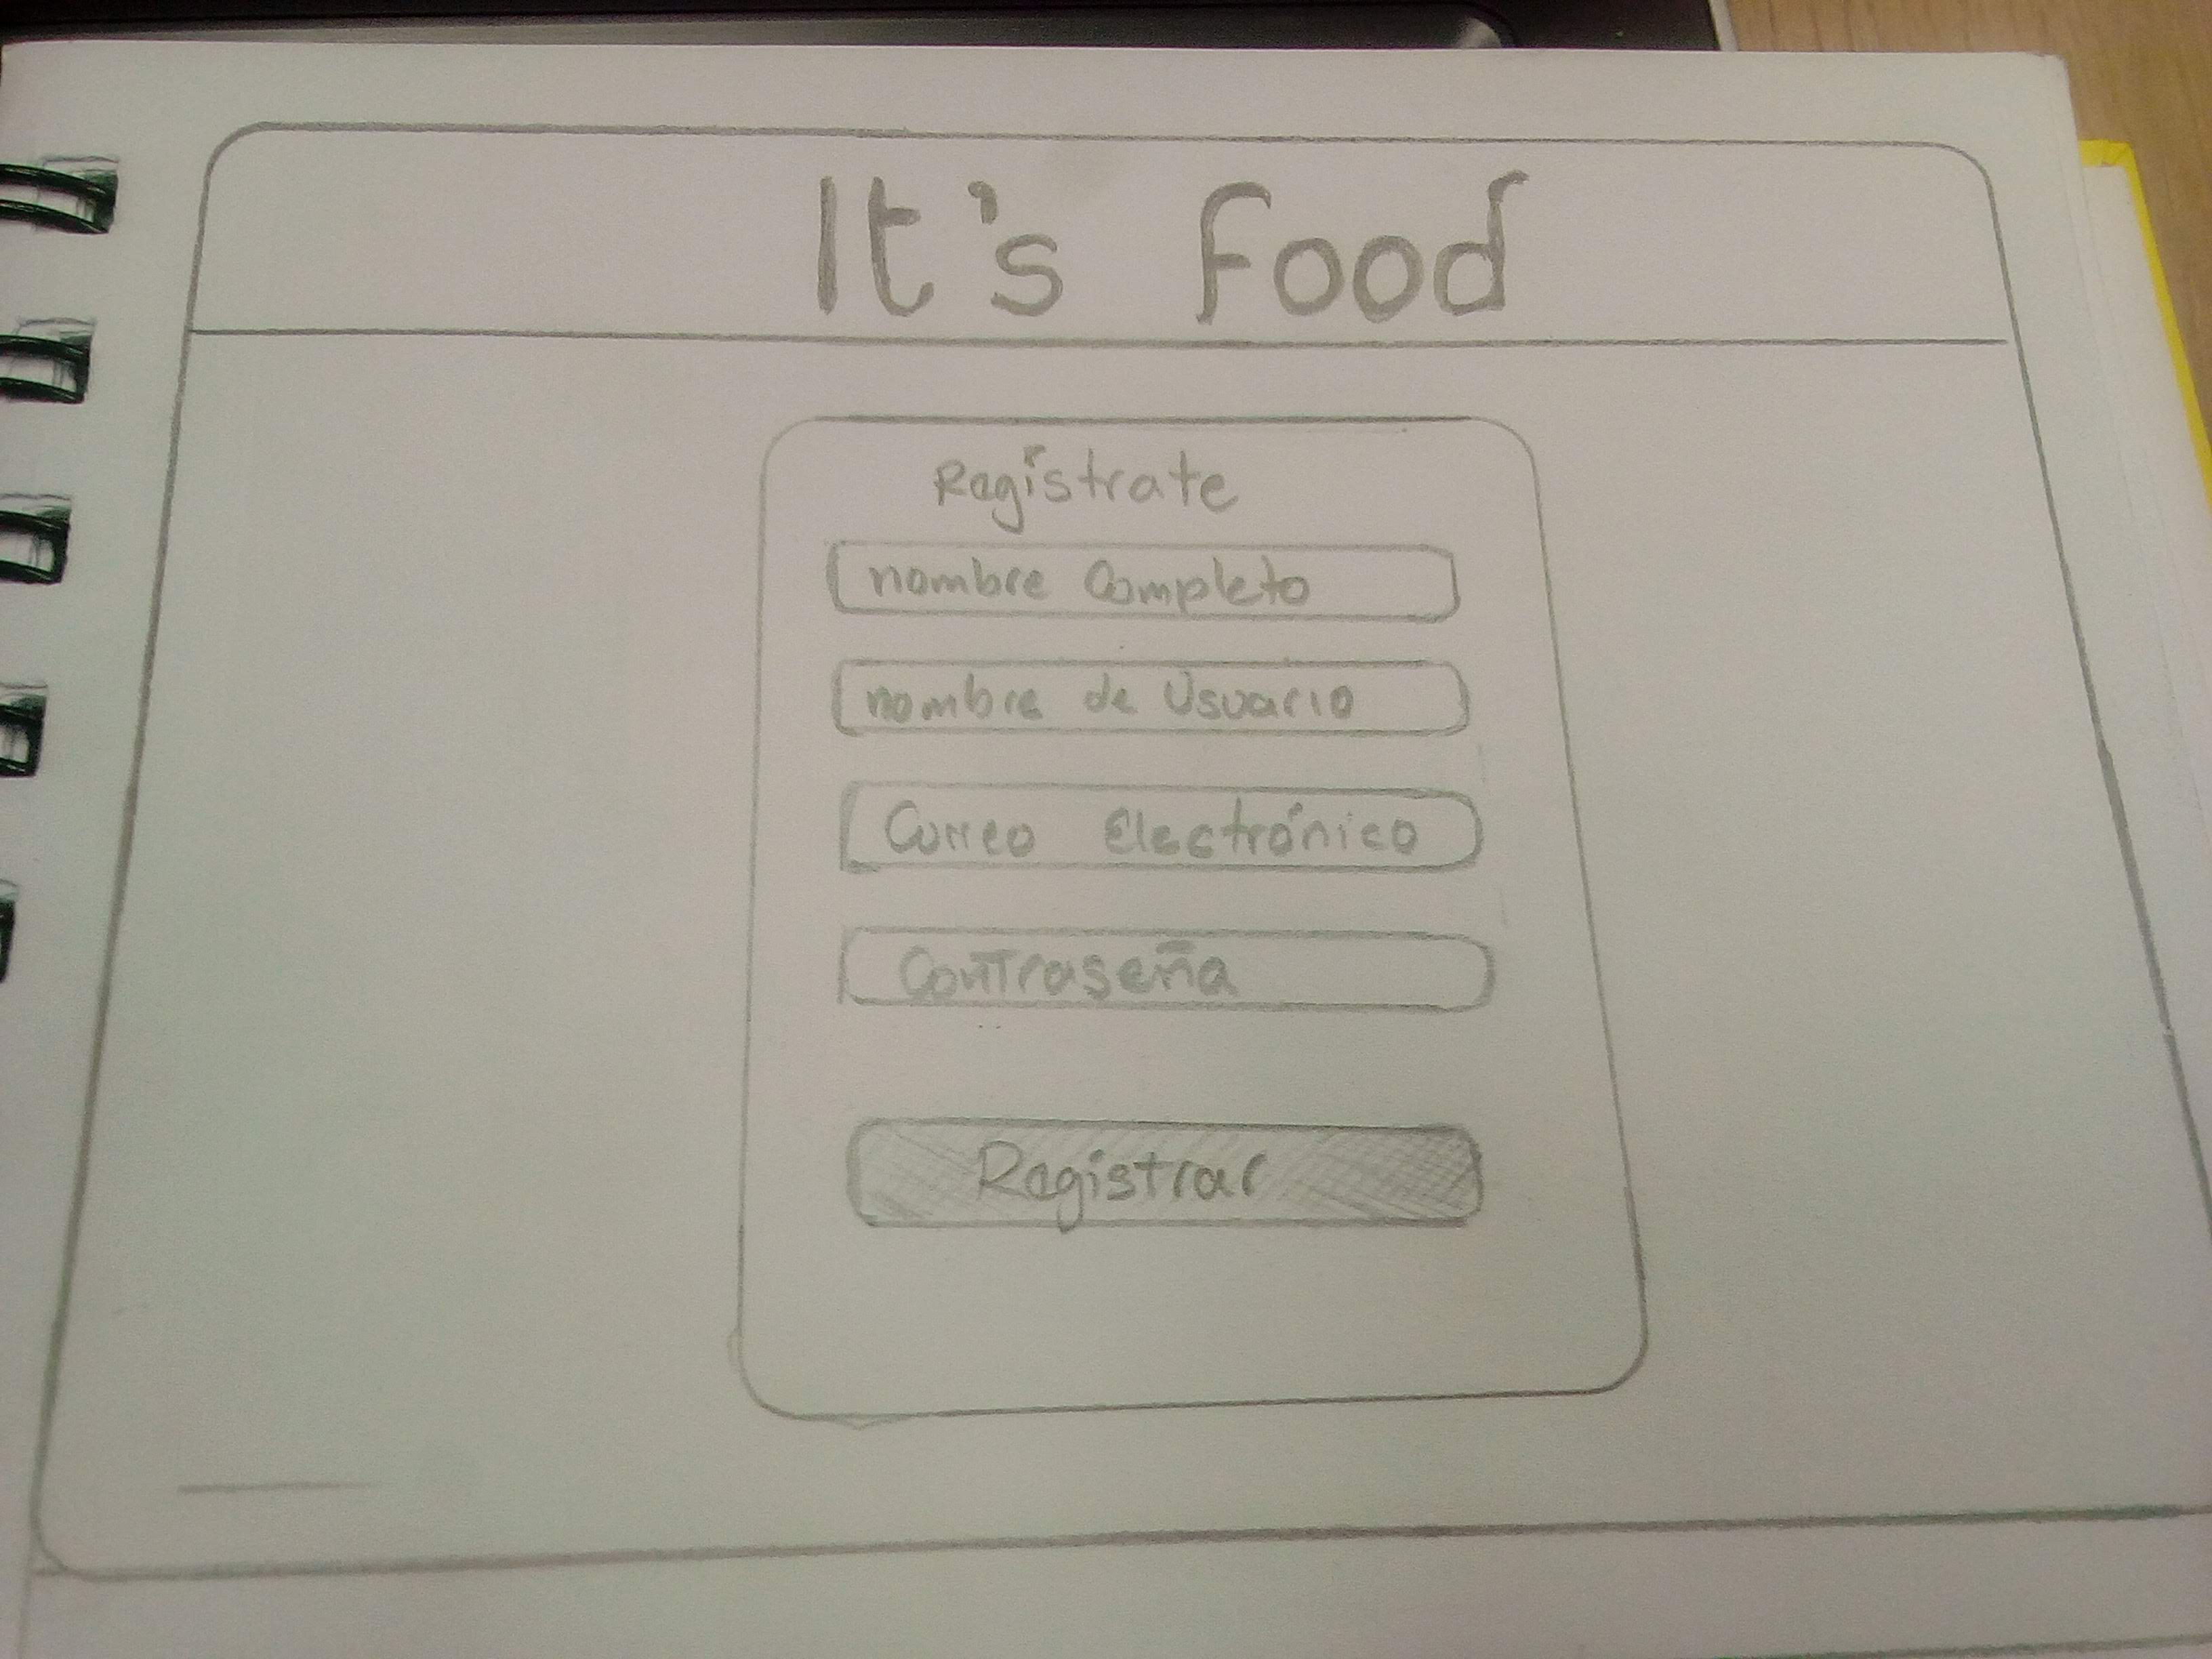 It's food
Registrate
nombre Completo
nombre de Usuario
Correo Electrónico
Contraseña
Registrar